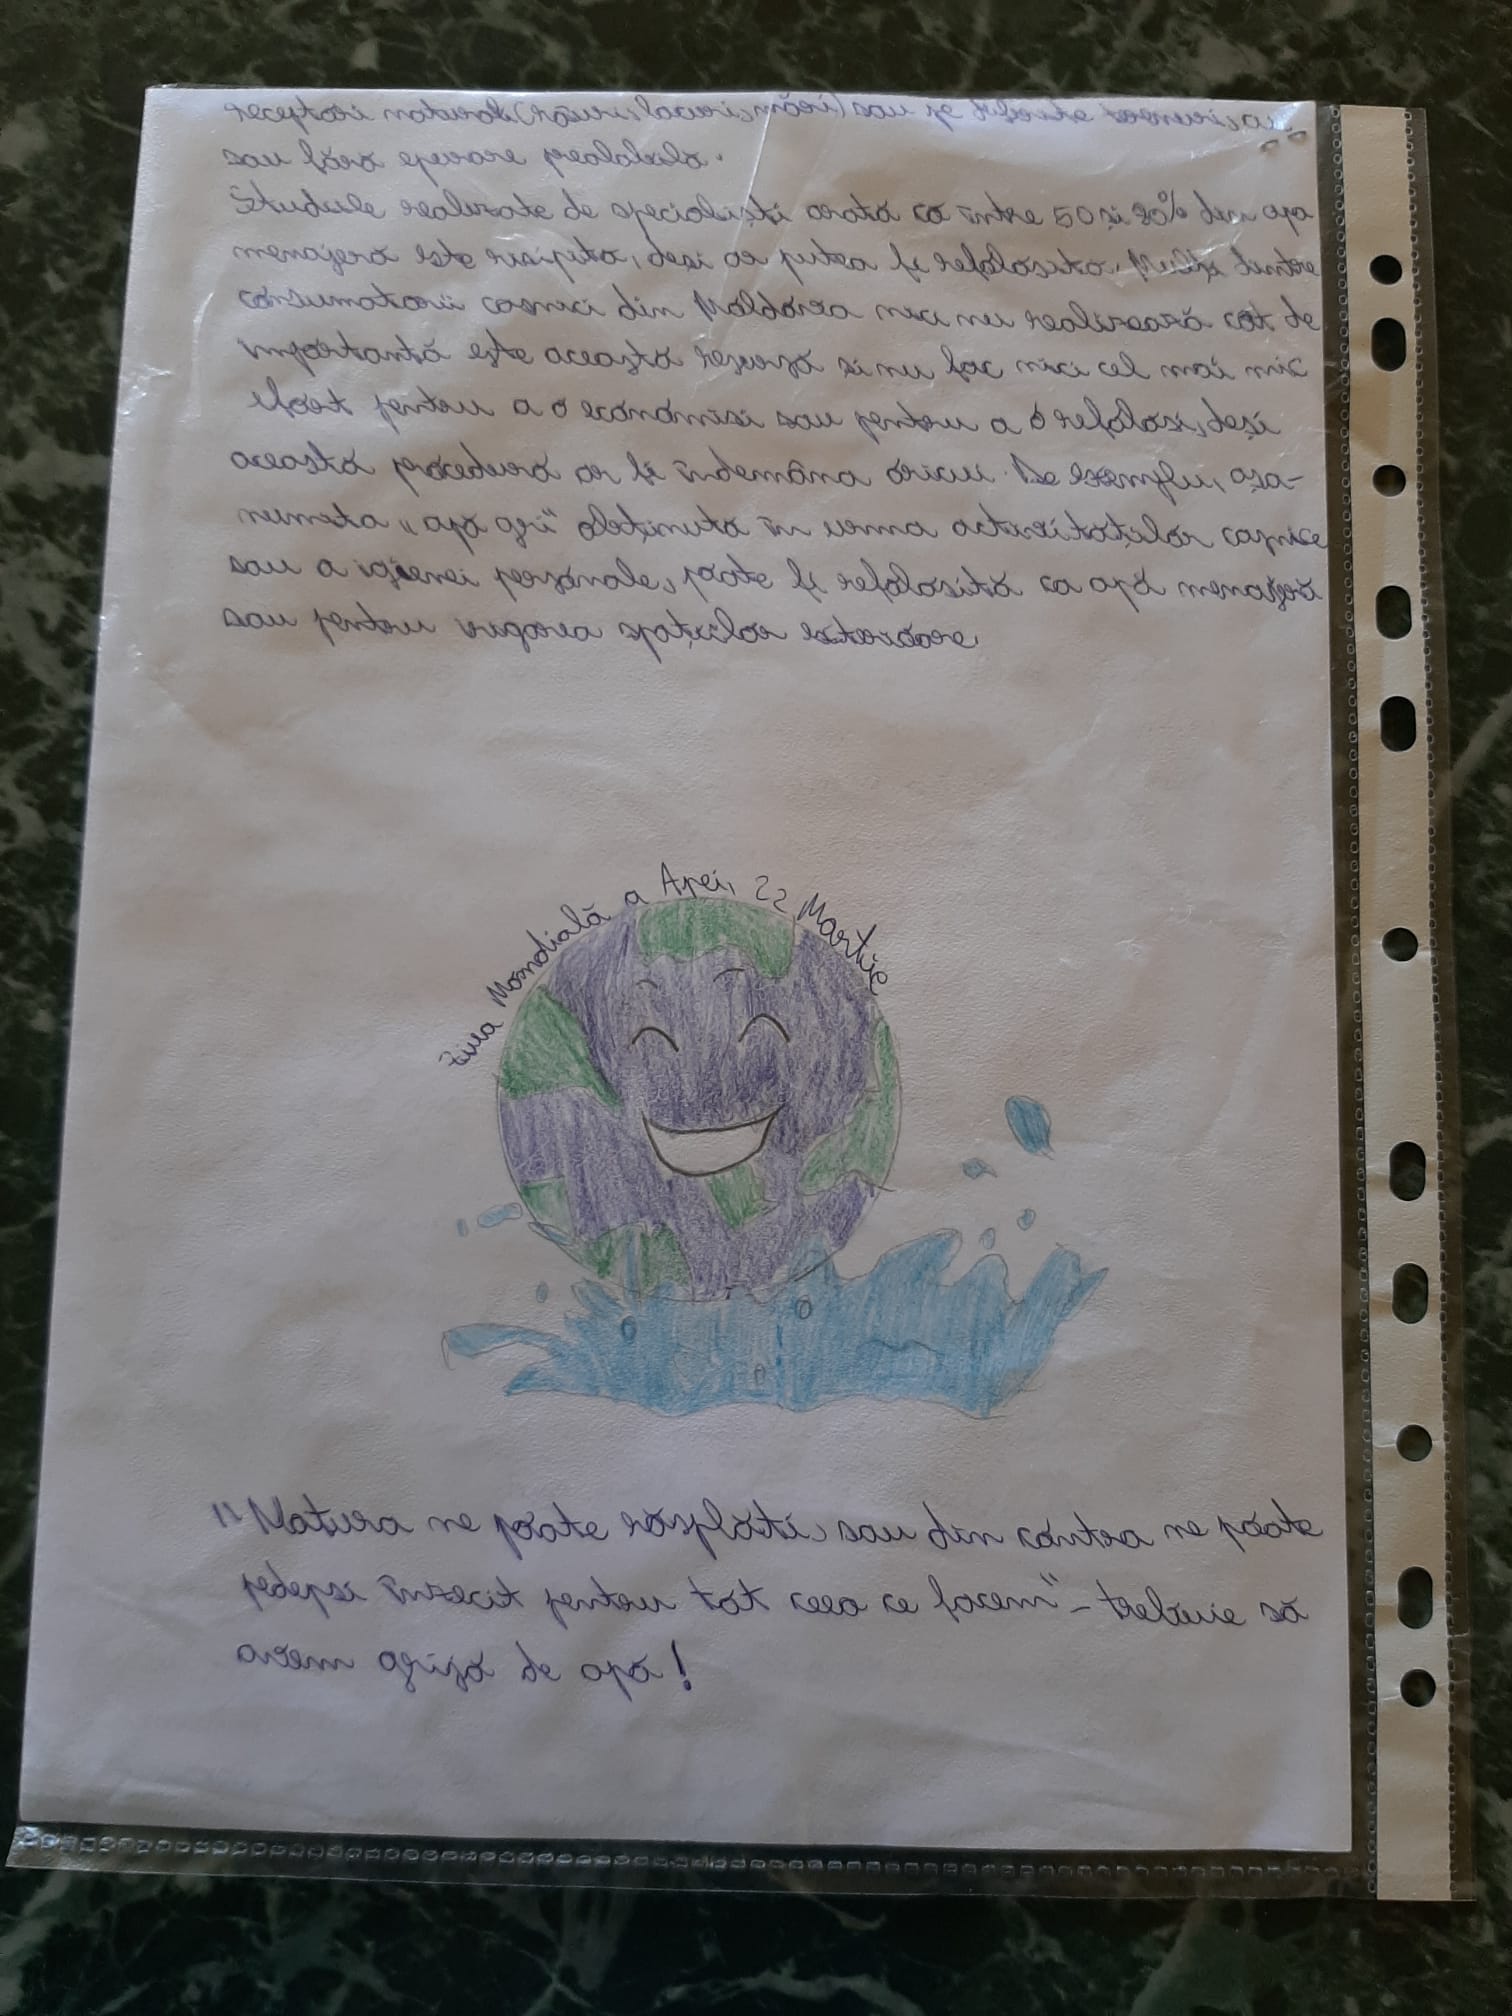 receptori naturali (râuri, lacuri, mări) sau pe
sau fără epurare prealabilă.
Studiile realizate de specialiști arată că între 50 și 80% din apa
menajeră este risipită, deși ar putea fi refolosită. Mulți dintre
consumatorii casnici din Moldova nici nu realizează cât de
importantă este această resursă și nu fac nici cel mai mic
efort pentru a o economisi sau pentru a o refolosi, deși
această procedură ar fi îndemâna oricui. De exemplu, așa-
numita „apă gri” obținută în urma activităților casnice
sau a igienei personale, poate fi refolosită ca apă menajeră
sau pentru irigarea spațiilor exterioare.
Ziua Mondială a Apei, 22 Martie
"Natura ne poate răsplăti, sau din contra ne poate
pedepsi înzecit pentru tot ceea ce facem" - trebuie să
avem grijă de apă!